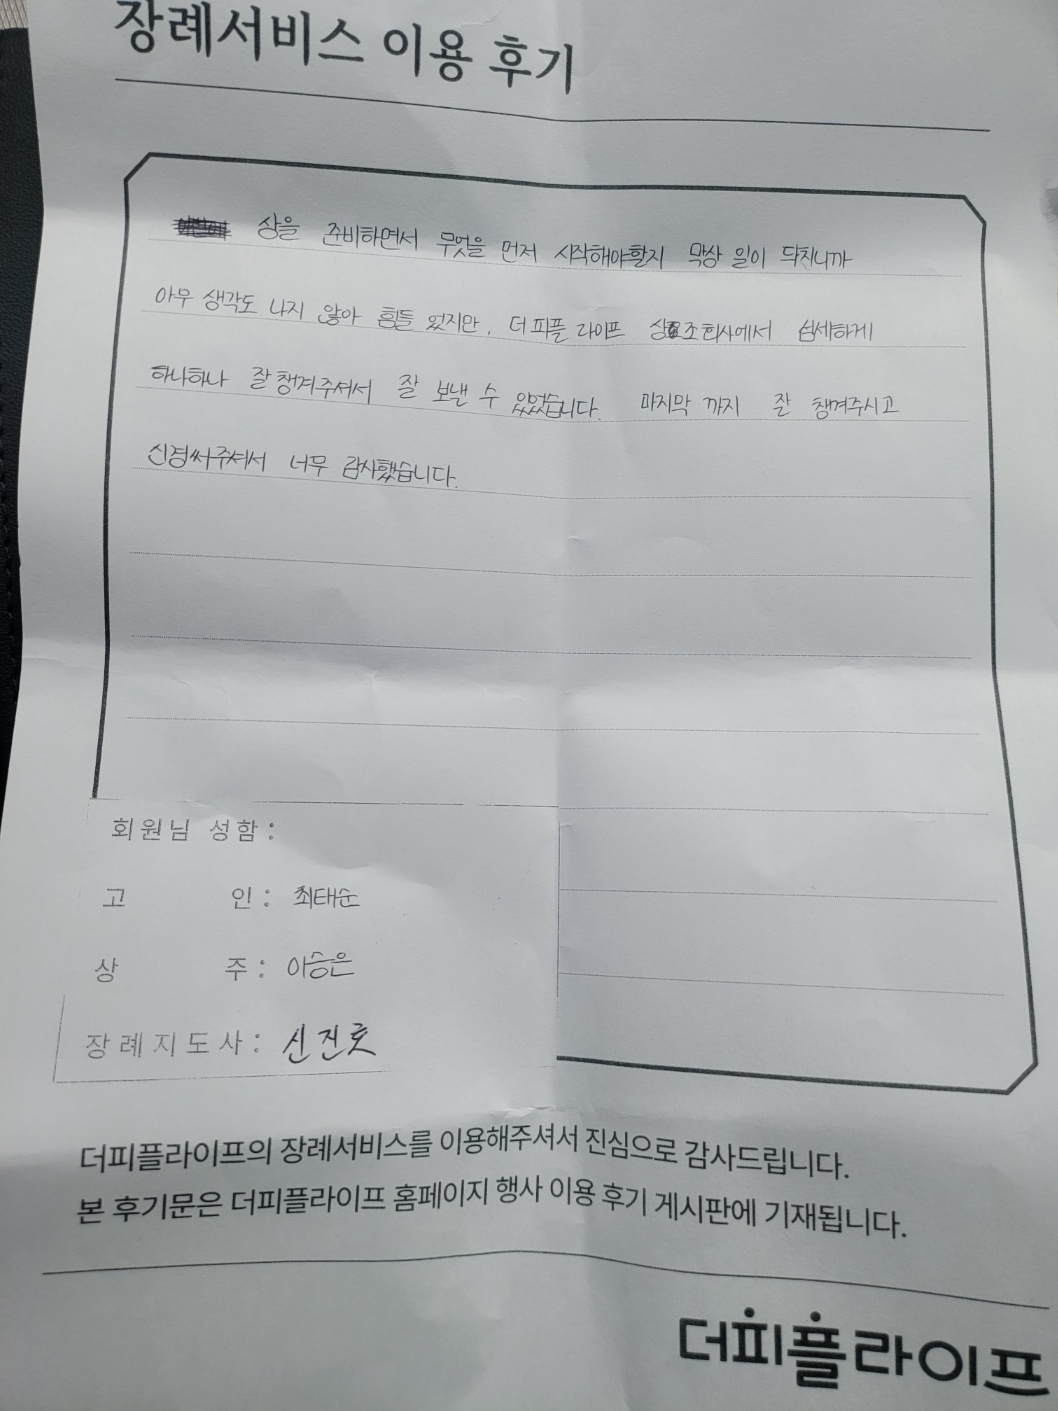 장례서비스 이용 후기
상을 준비하면서 무엇을 먼저 시작해야할지 막상 일이 닥치니까
아무 생각도 나지 않아 힘들었지만, 더피플 라이프 상조회사에서 섬세하게
하나하나 잘챙겨주셔서 잘 보낼 수 있었습니다. 마지막 까지 잘 챙겨주시고
신경써주셔서 너무 감사했습니다.
회원님 성함 :
고 인 : 최태순
상 주 : 이승은
장례지도사 : 신진호
더피플라이프의 장례서비스를 이용해주셔서 진심으로 감사드립니다.
본 후기문은 더피플라이프 홈페이지 행사 이용 후기 게시판에 기재됩니다.
더피플라이프